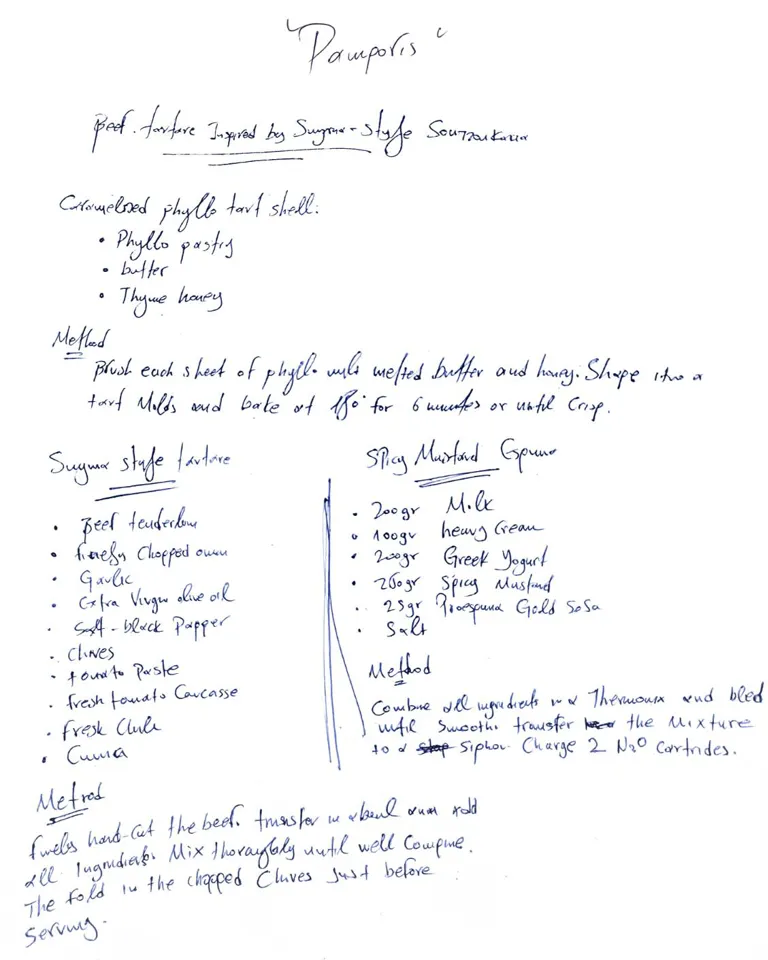 "Pamporis"
Beef. tartare Inspired by Smyrna-style Souzoukakia
Caramelized phyllo tart shell:
• Phyllo pastry
• butter
• Thyme honey
Method
Brush each sheet of phyllo with melted butter and honey. Shape into a
tart Molds and bake at 180° for 6 minutes or until Crisp.
Smyrna style tartare
• Beef tenderloin
• finely Chopped onion
• Garlic
• Extra Virgin olive oil
• Salt - black Papper
• Chives
• tomato Paste
• fresh tomato Carcasse
• Fresh Chili
• Cumin
Metrod
finely hand-cut the beef. transfer in a bowl and add
all Ingredients. Mix thoroughly until well Compine.
The fold in the chopped Chives Just before
Serving.
Spicy Mustard Espuma
• 200gr Milk
• 100gr heavy Cream
• 200gr Greek Yogurt
• 200gr Spicy Mustard
• 25gr Proespuma Gold SoSa
• Salt
Method
Combine all ingredients in a Thermomix and bled
until Smooth. transfer the Mixture
to a Siphon. Charge 2 N2O Cartrides.